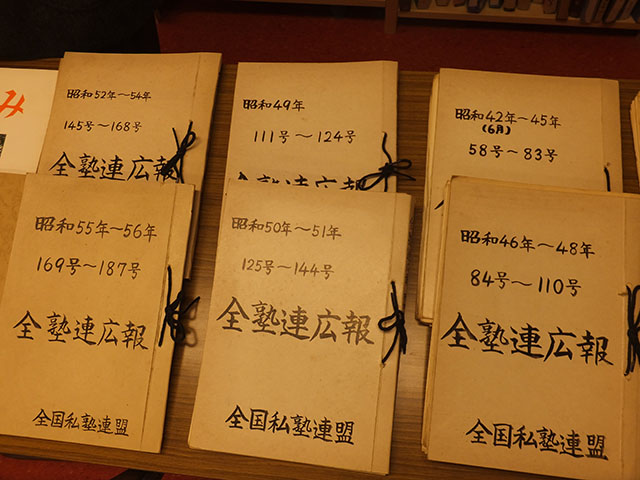 み
昭和52年～54年
145号～168号
全塾連広報
昭和49年
111号～124号
全塾連広報
昭和42年～45年
(6月)
58号～83号
昭和55年～56年
169号～187号
全塾連広報
全国私塾連盟
昭和50年～51年
125号～144号
全塾連広報
全国私塾連盟
昭和46年～48年
84号～110号
全塾連広報
全国私塾連盟